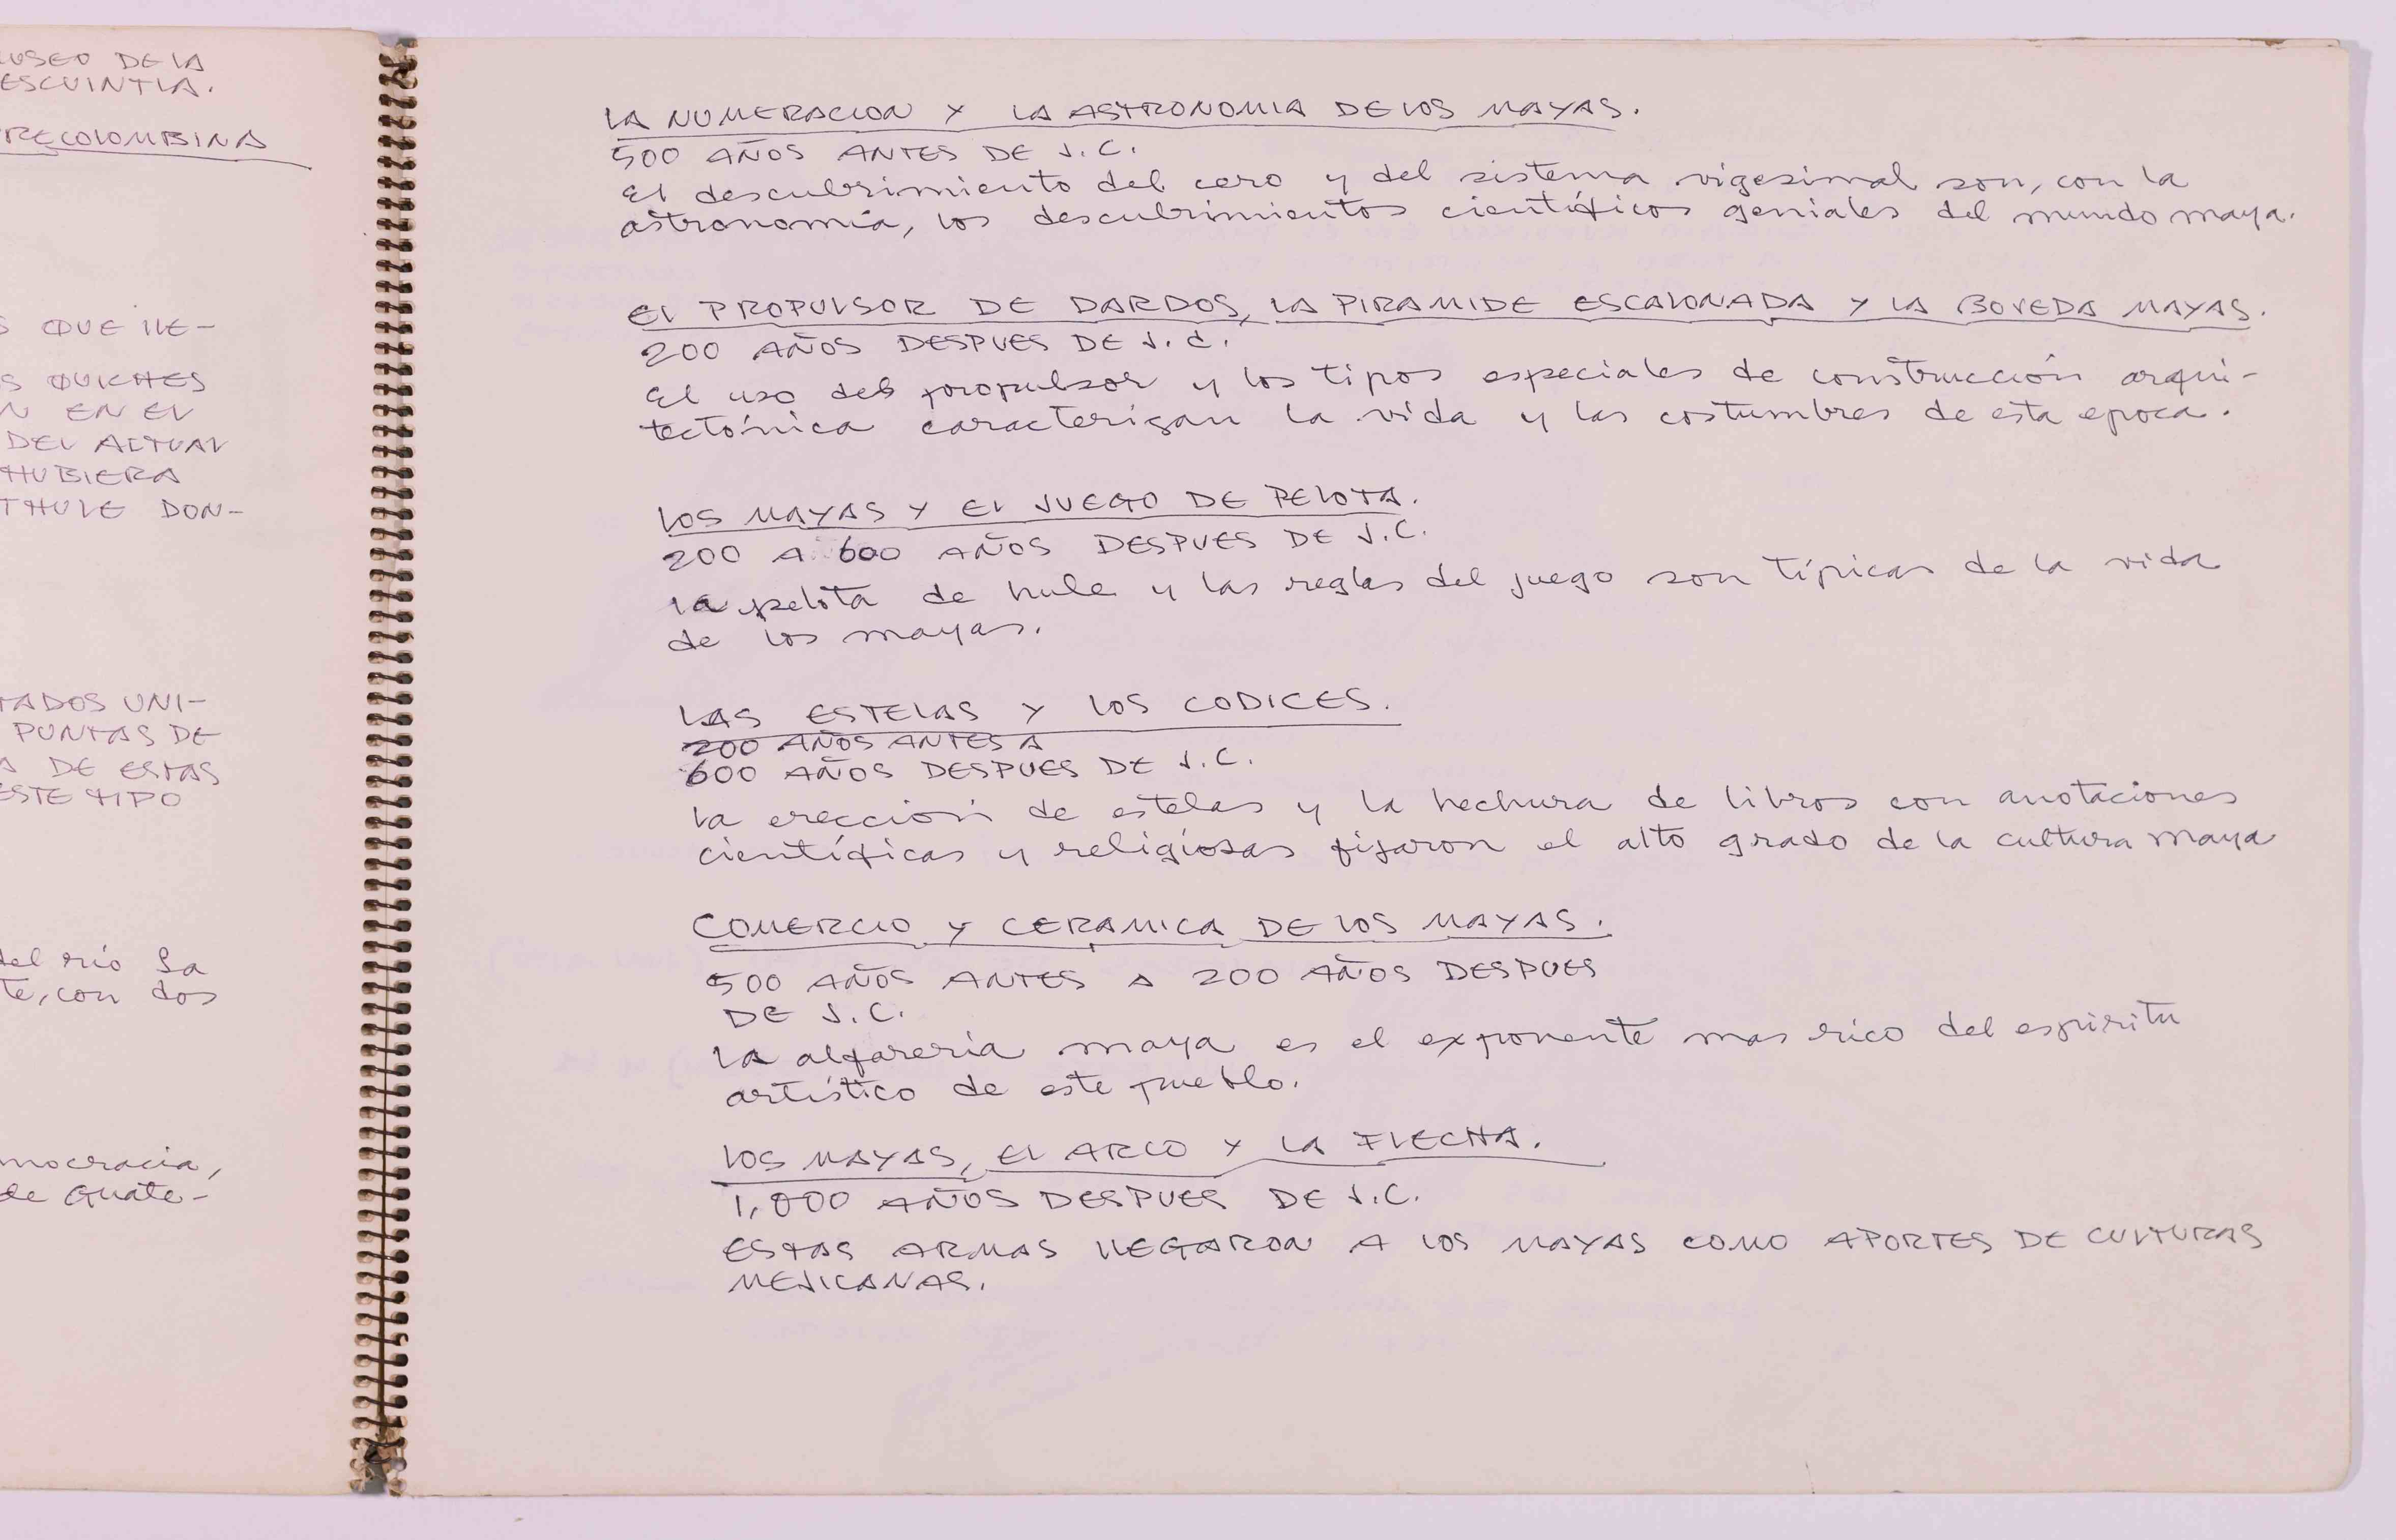 MUSEO DE LA
ESCUINTLA.
PRECOLOMBINA
QUE LLE-
QUICHES
EN EL
DEL ACTUAL
HUBIERA
THULE DON-
TADOS UNI-
PUNTAS DE
DE ESTAS
ESTE TIPO
del río La
te, con dos
mocracia,
de Guate-
LA NUMERACION Y LA ASTRONOMIA DE LOS MAYAS.
500 AÑOS ANTES DE J.C.
El descubrimiento del cero y del sistema vigesimal son, con la
astronomía, los descubrimientos científicos geniales del mundo maya.
EL PROPULSOR DE DARDOS, LA PIRAMIDE ESCALONADA Y LA BOVEDA MAYAS.
200 AÑOS DESPUES DE J.C.
El uso del propulsor y los tipos especiales de construcción arqui-
tectónica caracterizan la vida y las costumbres de esta epoca.
LOS MAYAS Y EL JUEGO DE PELOTA.
200 A 600 AÑOS DESPUES DE J.C.
la pelota de hule y las reglas del juego son típicas de la vida
de los mayas.
LAS ESTELAS Y LOS CODICES.
200 AÑOS ANTES A
600 AÑOS DESPUES DE J.C.
la erección de estelas y la hechura de libros con anotaciones
científicas y religiosas fijaron el alto grado de la cultura maya
COMERCIO Y CERAMICA DE LOS MAYAS.
500 AÑOS ANTES A 200 AÑOS DESPUES
DE J.C.
la alfarería maya es el exponente mas rico del espiritu
artístico de este pueblo.
LOS MAYAS, EL ARCO Y LA FLECHA.
1,000 AÑOS DESPUES DE J.C.
ESTAS ARMAS LLEGARON A LOS MAYAS COMO APORTES DE CULTURAS
MEJICANAS.